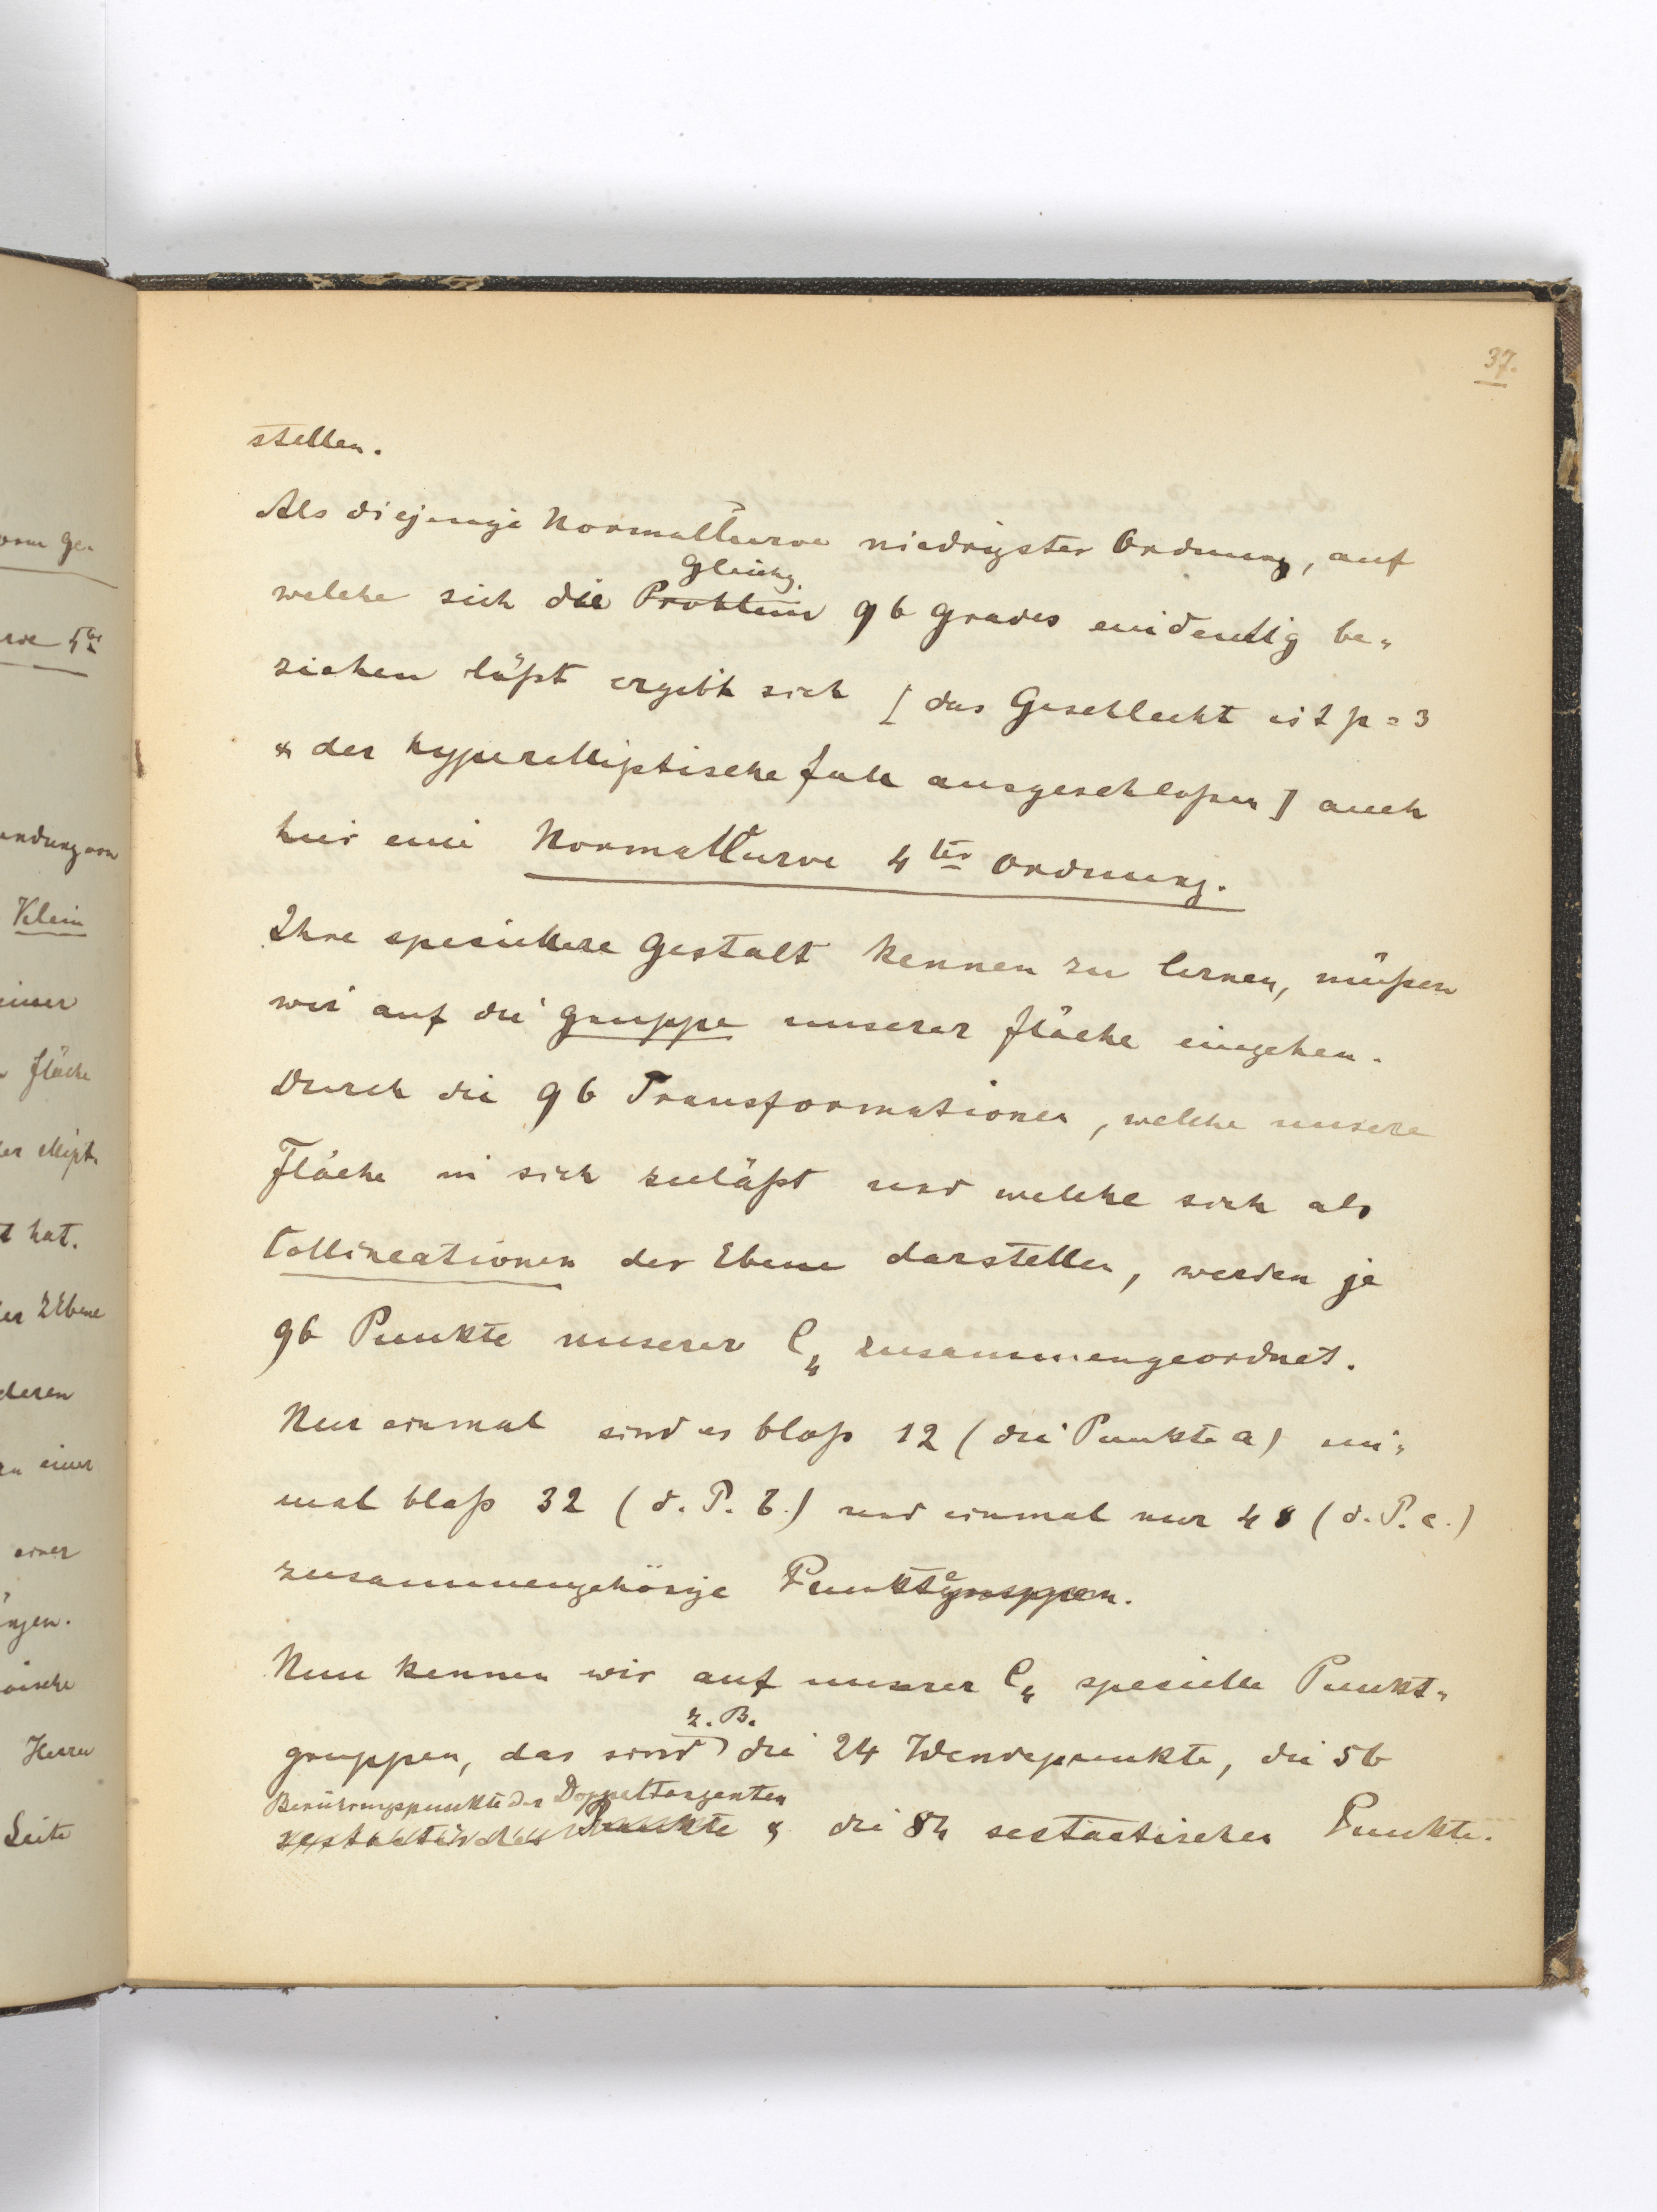 37.
stellen.
Als diejenige Normalkurve niedrigster Ordnung, auf
Gleichg.
welche sich die Problem 96 Grades eindeutig be-
ziehen läßt ergibt sich [ das Geschlecht ist p = 3
& der hyperelliptische Fall ausgeschloßen ] auch
hier eine Normalkurve 4ter Ordnung.
Ihre speciellere Gestalt kennen zu lernen, müßen
wir auf die Gruppe unserer Fläche eingehen.
Durch die 96 Transformationen, welche unsere
Fläche in sich zuläßt und welche sich als
Collineationen der Ebene darstellen, werden je
96 Punkte unserer C4 zusammengeordnet.
Nur einmal sind es bloß 12 ( die Punkte a ) ein-
mal bloß 32 ( d. P. b. ) und einmal nur 48 ( d. P. c. )
zusammengehörige Punktgruppen.
Nun kennen wir auf unserer C4 specielle Punkt-
z. B.
gruppen, das sind die 24 Wendepunkte, die 56
Berührungspunkte der Doppeltangenten
sestactischen Punkte & die 84 sestactischen Punkte.
orm Ge-
rve 4ter
endung von
Klein
einer
Fläche
der ellipt.
t hat.
der Ebene
deren
zu einer
einer
ngen.
Herrn
Seite